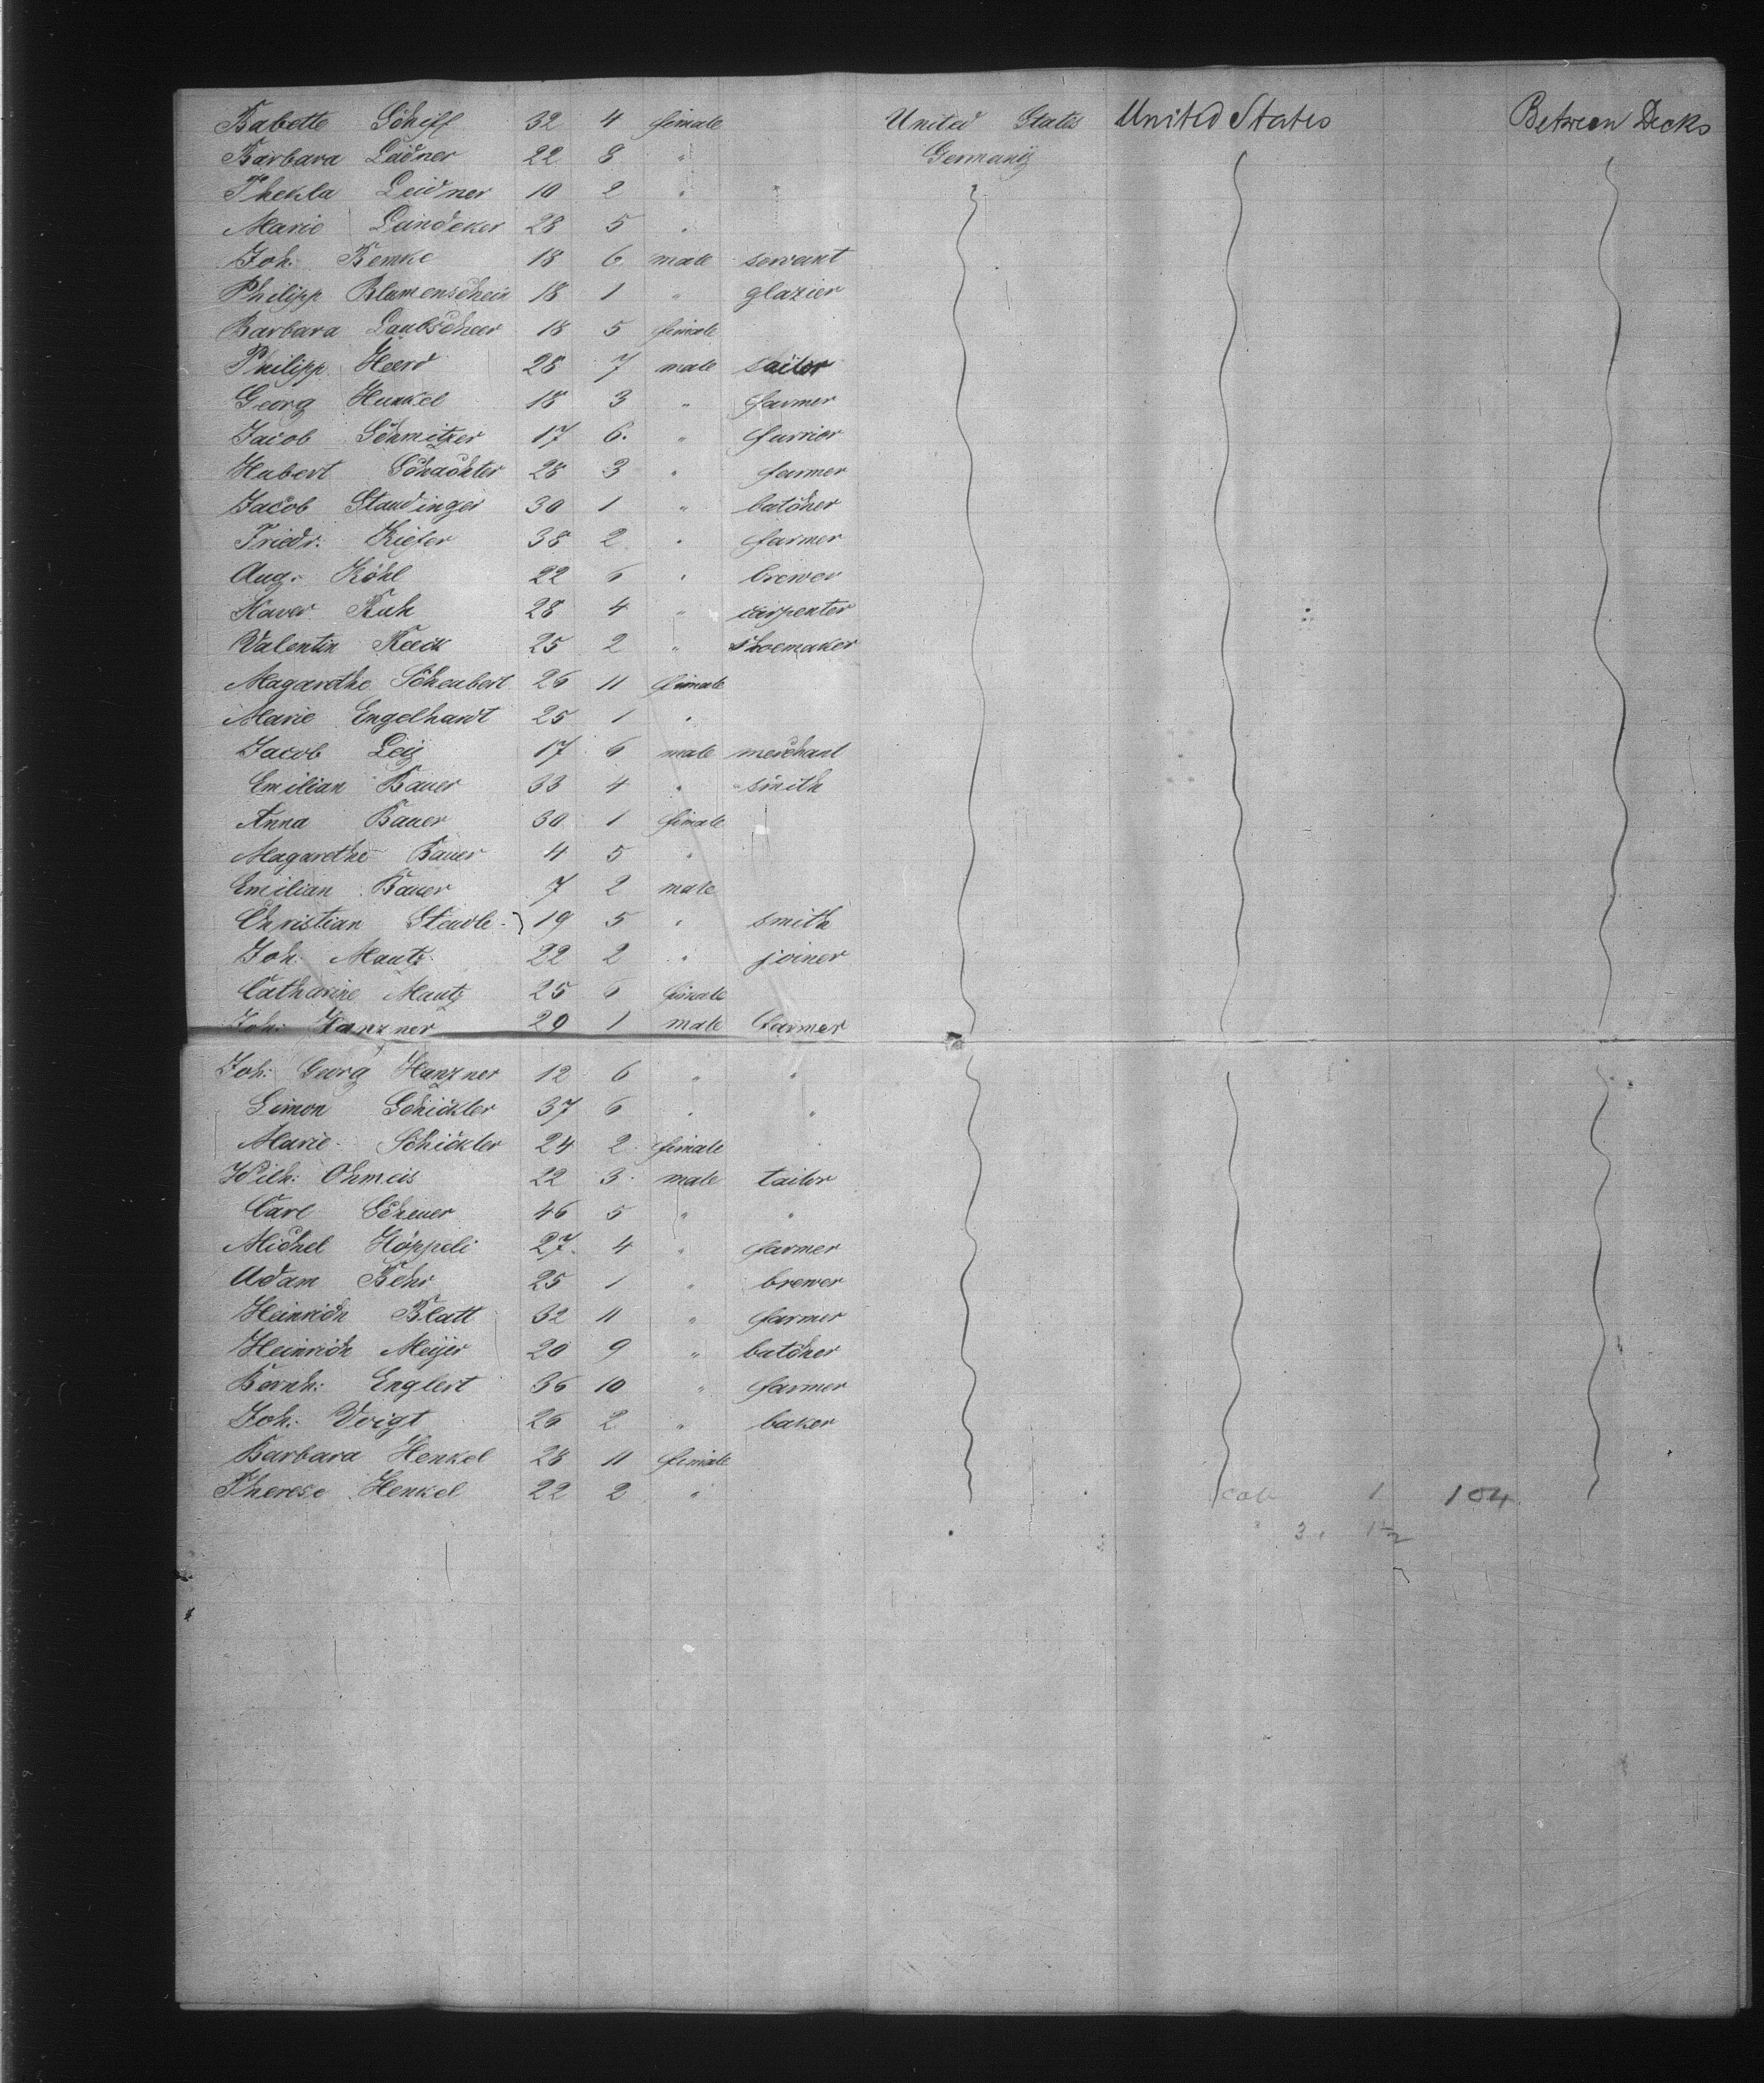 Babette Schiff 32 4 female United States United States Between Decks
Barbara Leidner 22 8 " Germany
Thekla Leidner 10 2 " "
Marie Lundeker 28 5 "
Joh. Bemke 18 6 male servant
Philipp Blumenschein 18 1 " glazier
Barbara Laubscheer 18 5 female
Philipp Heerd 28 7 male sailor
Georg Hunkel 18 3 " farmer
Jacob Schmitzer 17 6. " furrier
Hubert Schachter 28 3 " farmer
Jacob Staudinger 30 1 " butcher
Friedr. Kiefer 38 2 " farmer
Aug. Köhl 22 6 " brewer
Xaver Ruh 28 4 " carpenter
Valentin Keck 25 2 " shoemaker
Magarethe Scheubert 26 11 female
Marie Engelhardt 25 1 "
Jacob Leiz 17 6 male merchant
Emilian Bauer 33 4 " smith
Anna Bauer 30 1 female
Magarethe Bauer 4 5 "
Emilian Bauer 7 2 male
Christian Steudle 19 5 " smith
Joh. Mautz 22 2 " joiner
Catharine Mautz 25 6 female
Joh. Hanzner 29 1 male farmer
Joh: Georg Hanzner 12 6 " "
Simon Schickler 37 6 " "
Marie Schickler 24 2 female
Wilh: Ohmeis 22 3 male tailor
Carl Scheuer 46 5 " "
Michel Höppeli 27 4 " farmer
Adam Behr 25 1 " brewer
Heinrich Blatt 32 11 " farmer
Heinrich Meijer 20 9 " butcher
Bernh: Englert 36 10 " farmer
Joh: Voigt 26 2 " baker
Barbara Henkel 28 11 female
Therese Henkel 22 2 " 1 104
3 1½